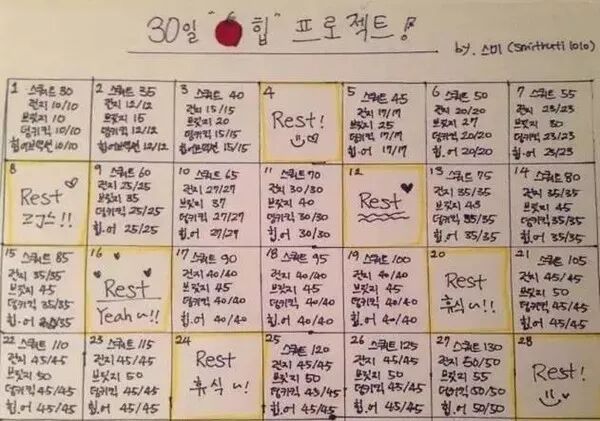 30일 " 힙" 프로젝트!
by. 스미 (smithruti lolo)
1 스쿼트 30
런지 10/10
브릿지 10
덩키킥 10/10
힙어브덕션 10/10
2 스쿼트 35
런지 12/12
브릿지 15
덩키킥 12/12
힙어브덕션 12/12
3 스쿼트 40
런지 15/15
브릿지 20
덩키킥 15/15
힙어브덕션 15/15
4
Rest!
5 스쿼트 45
런지 17/17
브릿지 25
덩키킥 17/17
힙.어 17/17
6 스쿼트 50
런지 20/20
브릿지 27
덩키킥 20/20
힙.어 20/20
7 스쿼트 55
런지 23/23
브릿지 30
덩키킥 23/23
힙.어 23/23
8
Rest
고고스!!
9 스쿼트 60
런지 25/25
브릿지 35
덩키킥 25/25
힙.어 25/25
10 스쿼트 65
런지 27/27
브릿지 37
덩키킥 27/27
힙.어 27/29
11 스쿼트 70
런지 30/30
브릿지 40
덩키킥 30/30
힙.어 30/30
12
Rest
13 스쿼트 75
런지 35/35
브릿지 45
덩키킥 35/35
힙.어 35/35
14 스쿼트 80
런지 35/35
브릿지 45
덩키킥 35/35
힙.어 35/35
15 스쿼트 85
런지 35/35
브릿지 45
덩키킥 35/35
힙.어 35/35
16
Rest
Yeah~!!
17 스쿼트 90
런지 40/40
브릿지 45
덩키킥 40/40
힙.어 40/40
18 스쿼트 95
런지 40/40
브릿지 45
덩키킥 40/40
힙.어 40/40
19 스쿼트 100
런지 40/40
브릿지 45
덩키킥 40/40
힙.어 40/40
20
Rest
휴식~!!
21 스쿼트 105
런지 45/45
브릿지 50
덩키킥 45/45
힙.어 45/45
22 스쿼트 110
런지 45/45
브릿지 50
덩키킥 45/45
힙.어 45/45
23 스쿼트 115
런지 45/45
브릿지 50
덩키킥 45/45
힙.어 45/45
24
Rest
휴식~!
25 스쿼트 120
런지 45/45
브릿지 50
덩키킥 45/45
힙.어 45/45
26 스쿼트 125
런지 45/45
브릿지 50
덩키킥 45/45
힙.어 45/45
27 스쿼트 130
런지 50/50
브릿지 55
덩키킥 50/50
힙.어 50/50
28
Rest!